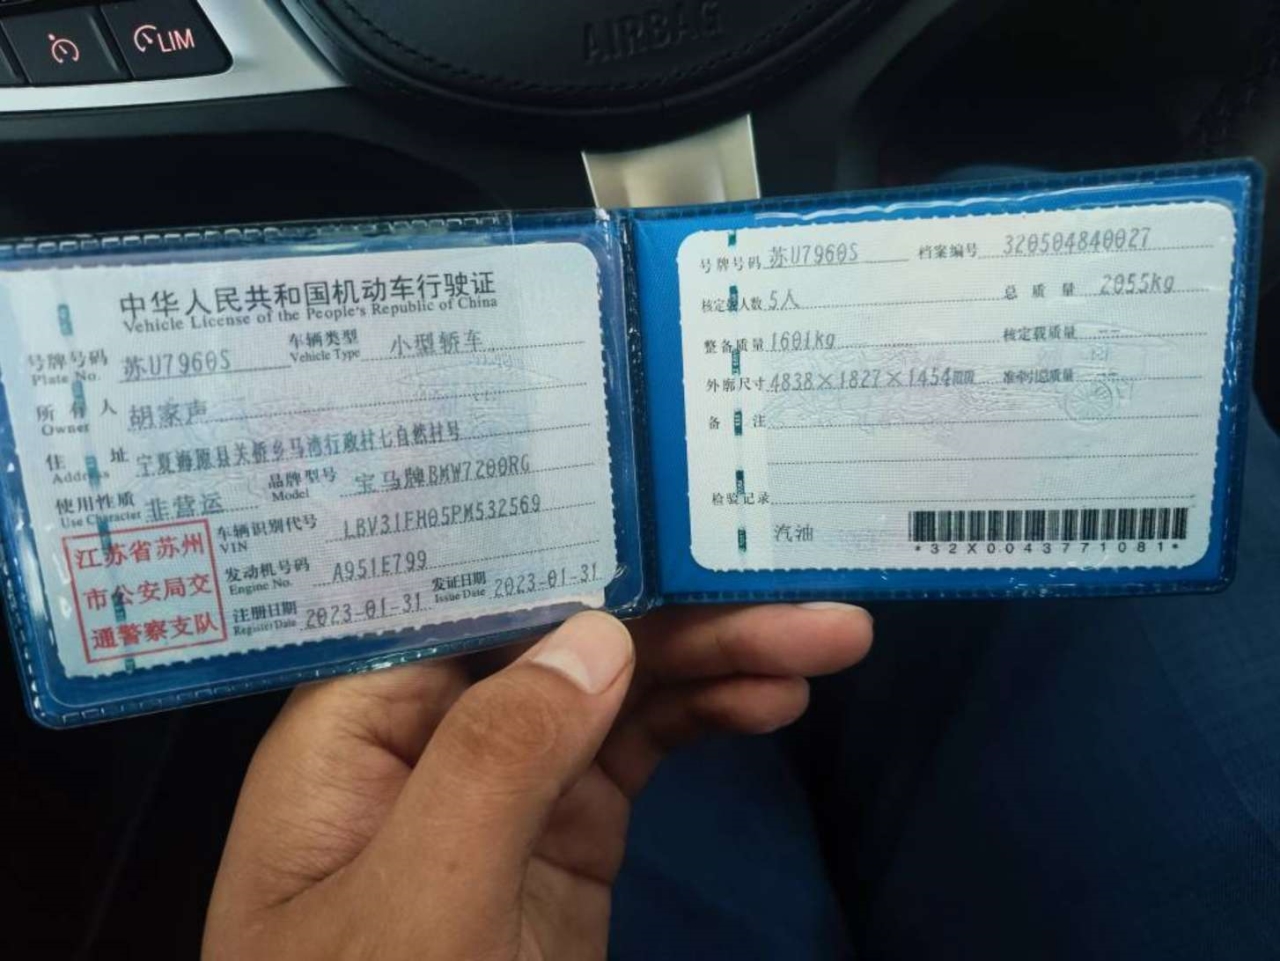 LIM
AIRBAG
中华人民共和国机动车行驶证
Vehicle License of the People's Republic of China
号牌号码 苏U7960S 车辆类型 小型轿车
Plate No. Vehicle Type
所有人 胡家声
Owner
住址 宁夏海原县关桥乡马湾行政村七自然村号
Address
使用性质 非营运 品牌型号 宝马牌BMW7200RG
Use Character Model
江苏省苏州
市公安局交
通警察支队
车辆识别代号 LBV31FH05PM532569
VIN
发动机号码 A951E799
Engine No.
注册日期 2023-01-31 发证日期 2023-01-31
Register Date Issue Date
号牌号码 苏U7960S 档案编号 320504840027
核定载人数 5人 总质量 2055kg
整备质量 1601kg 核定载质量 --
外廓尺寸 4838×1827×1454mm 准牵引总质量 --
备注
检验记录
汽油
*32X0043771081*